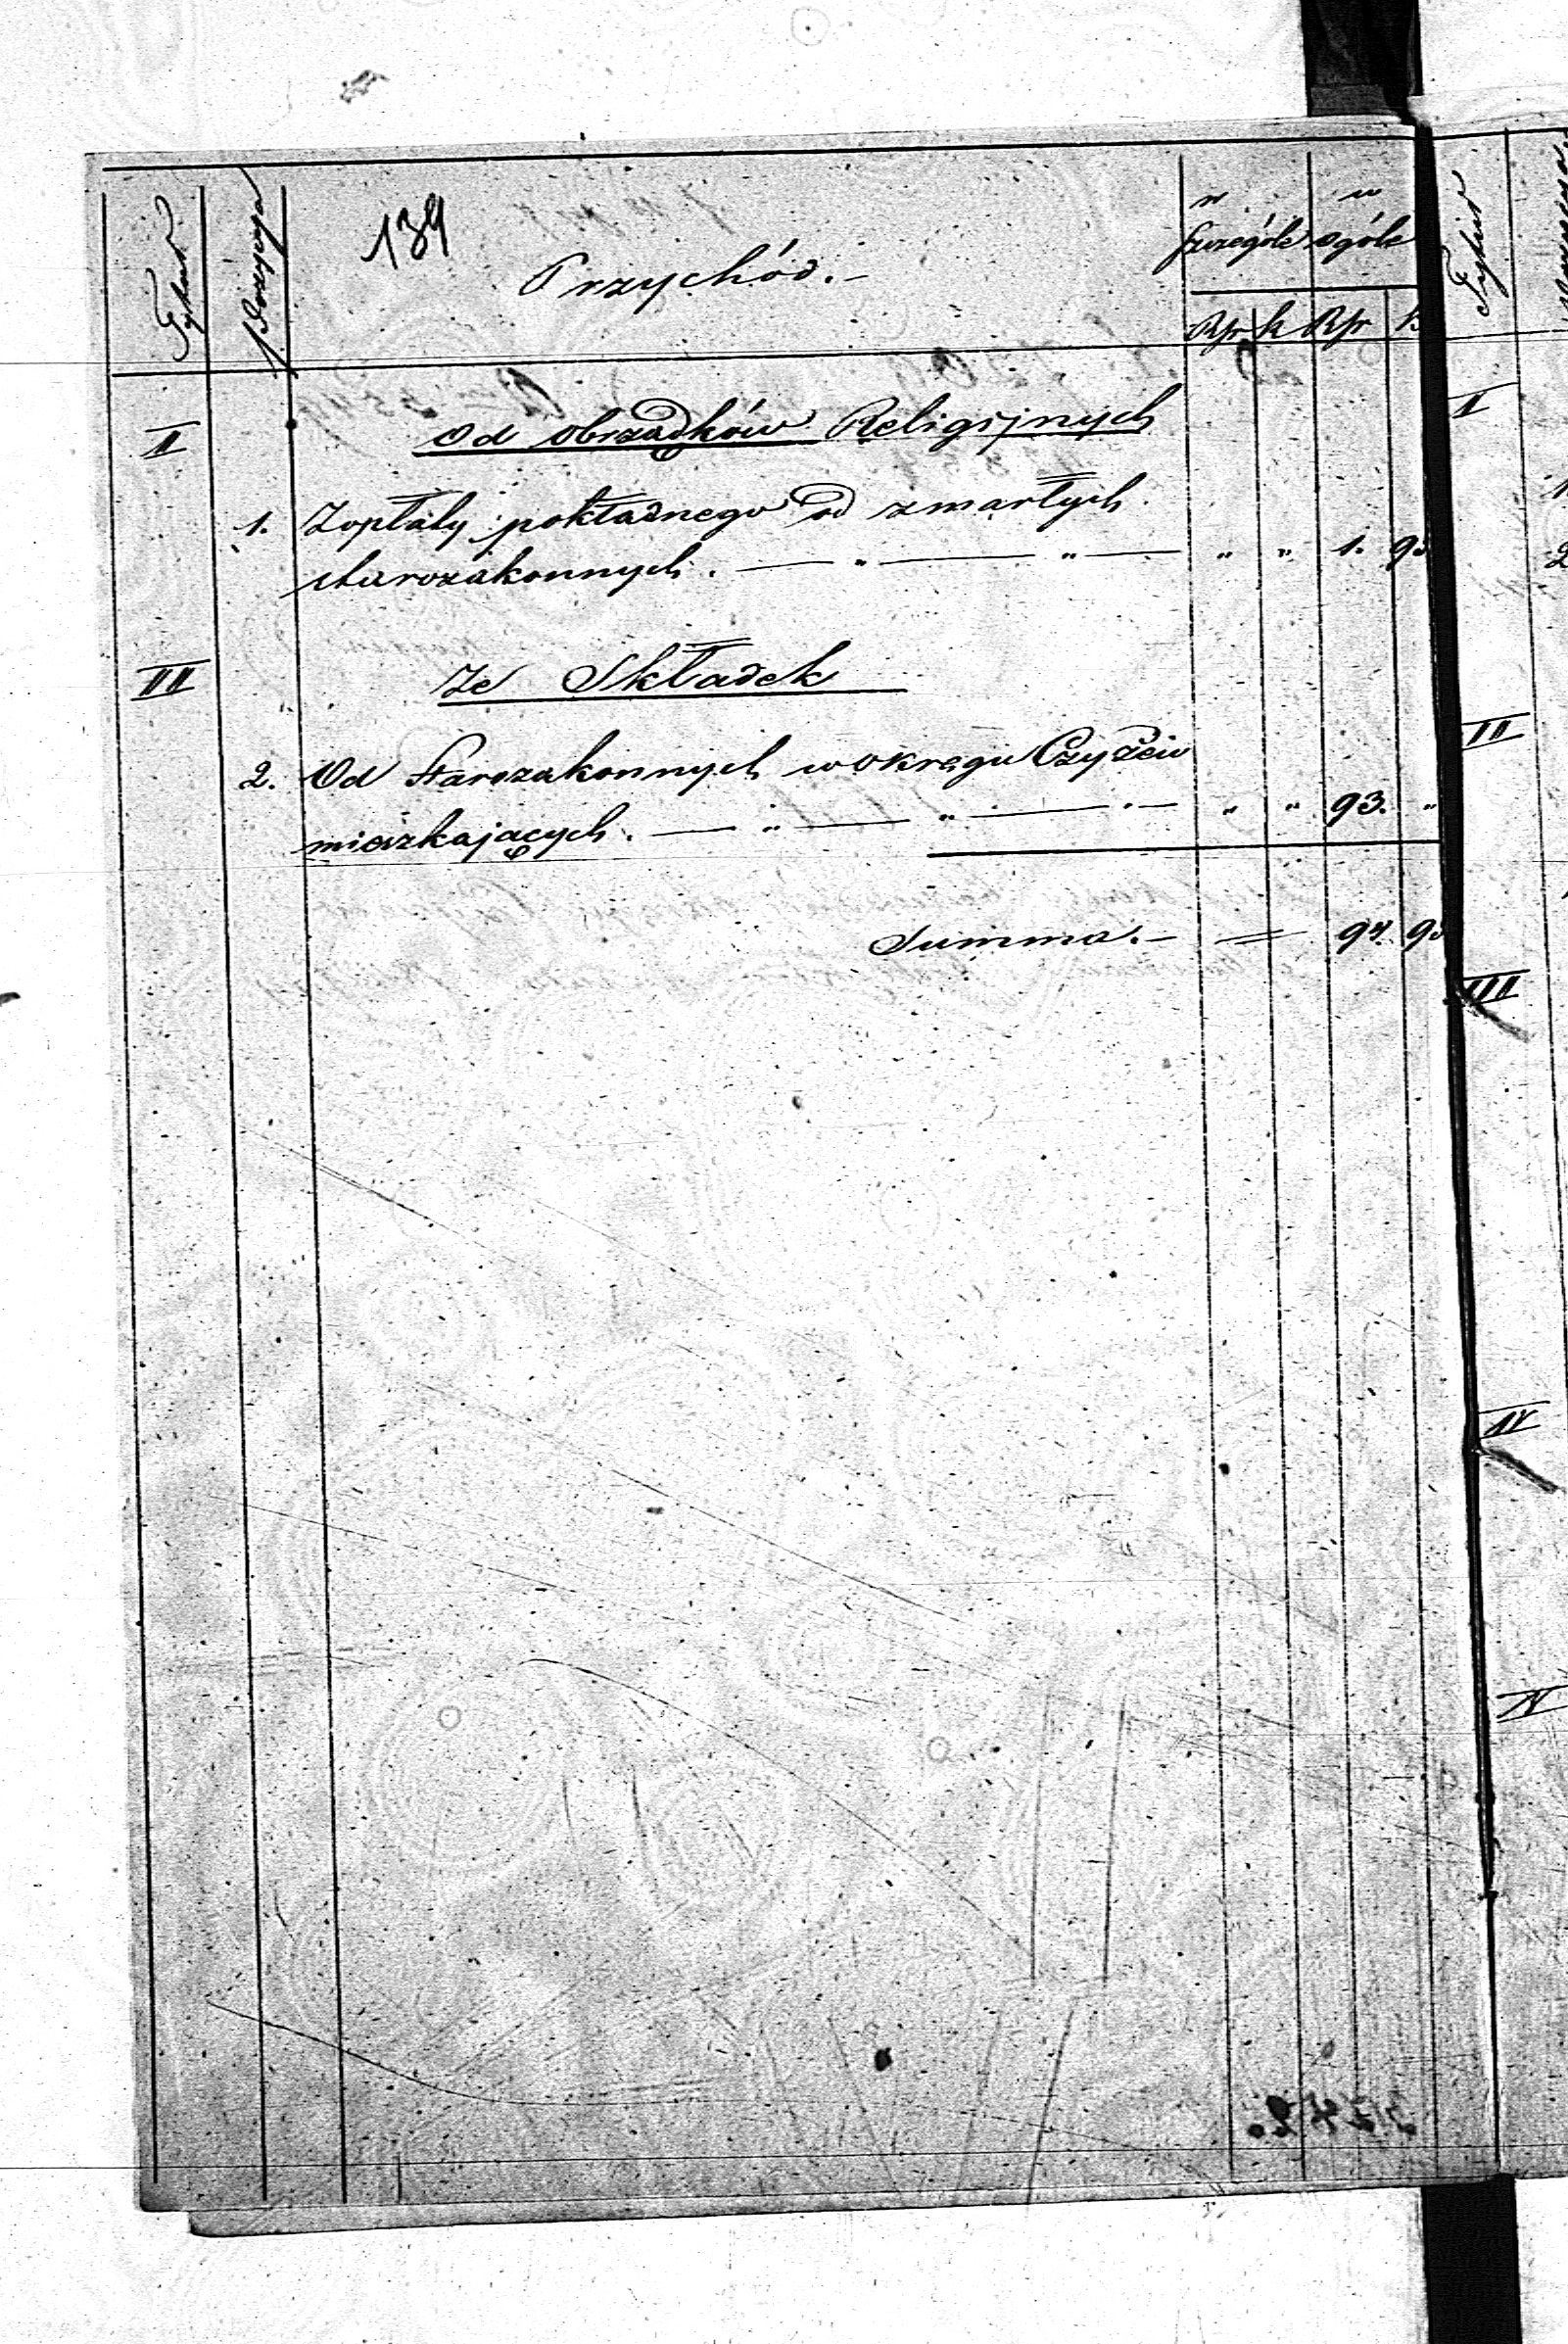 139
Tytuł
Pozycya
Przychód.-
w szczególe
w ogóle
Rsr k Rsr k
II
Od obrządków Religijnych
1. Z opłaty pokładnego od zmarłych
starozakonnych. — " — " — " " 1. 95
III
Ze Składek
2. Od Starozakonnych w okręgu Czyżew
mieszkających. — " — " — " — " " 93. "
Summa.- = 94. 95
Tytuł
II
1
2
II
III
IV
IV